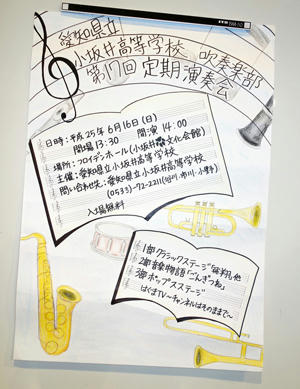 愛知県立
小坂井高等学校 吹奏楽部
第17回 定期演奏会
日時:平成25年6月16日(日)
開場 13:30 開演 14:00
場所:フロイデンホール(小坂井文化会館)
主催:愛知県立小坂井高等学校
問い合わせ先:愛知県立小坂井高等学校
(0533)-72-2211
入場無料
1部 クラシックステージ
2部 音楽物語「ごんぎつね」
3部 ポップスステージ
はくまTV〜チャンネルはそのままで〜